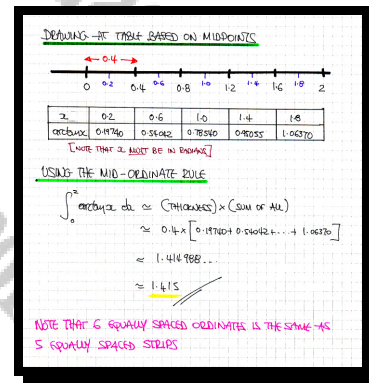 DRAWING AT TABLE BASED ON MIDPOINTS
0.4
0 0.2 0.4 0.6 0.8 1.0 1.2 1.4 1.6 1.8 2
x 0.2 0.6 1.0 1.4 1.8
arctanx 0.19740 0.54042 0.78540 0.95055 1.06370
[NOTE THAT x MUST BE IN RADIANS]
USING THE MID-ORDINATE RULE
∫₀² arctanx dx ≃ (THICKNESS) × (SUM OF ALL)
≃ 0.4 × [0.19740 + 0.54042 + ... + 1.06370]
≃ 1.414988...
≃ 1.415
NOTE THAT 6 EQUALLY SPACED ORDINATES IS THE SAME AS
5 EQUALLY SPACED STRIPS